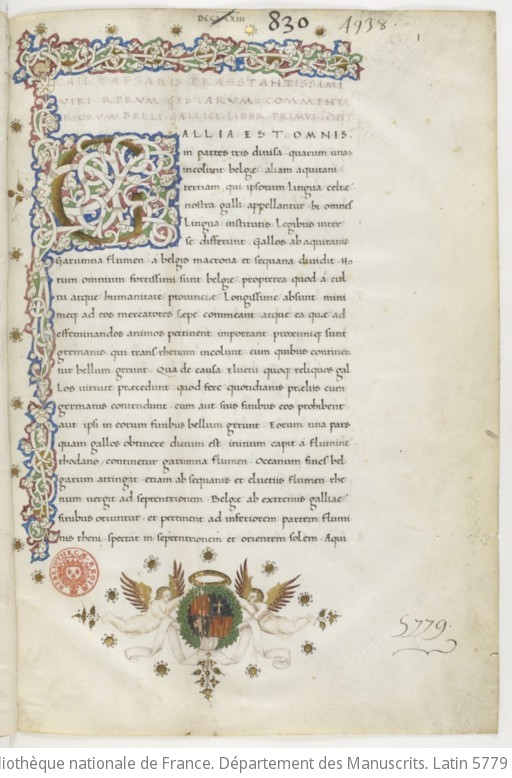 DCCLXXIII
830
1938
1
CAII CAESARIS PRAESTANTISSIMI
VIRI RERVM GESTARVM COMMENTA
RIORVM BELLI GALLICI LIBER PRIMVS ICIPIT
GALLIA EST OMNIS
in partes tris diuisa quarum unas
incolunt belgę aliam aquitani
tertiam qui ipsorum lingua celtę
nostra galli appellantur hi omnes
Lingua institutis Legibus inter
se differunt Gallos ab aquitanis
Garumna flumen a belgis macrona et sequana diuidit Ho
rum omnium fortissimi sunt belgę propterea quod a cul
tu atque humanitate prouincię Longissime absunt mini
meq ad eos mercatores sępe commeant atque ea quę ad
effeminandos animos pertinent important proximiq sunt
germanis qui trans rhenum incolunt cum quibus continen
tur bellum gerunt Qua de causa eluetii quoq reliquos gal
Los uirtute pręcedunt quod fere quotidianis pręliis cum
germanis contendunt cum aut suis finibus eos prohibent
aut ipsi in eorum finibus bellum gerunt Eorum una pars
quam gallos obtinere dictum est initium capit a flumine
rhodano continetur garumna flumen Oceanum fines bel
garum attingit etiam ab sequanis et eluetiis flumen rhe
num uergit ad septentrionem Belgę ab extremis galliae
finibus oriuntur et pertinent ad inferiorem partem flumi
nis rheni spectat in septentrionem et orientem solem Aqui
5779
Bibliothèque nationale de France. Département des Manuscrits. Latin 5779